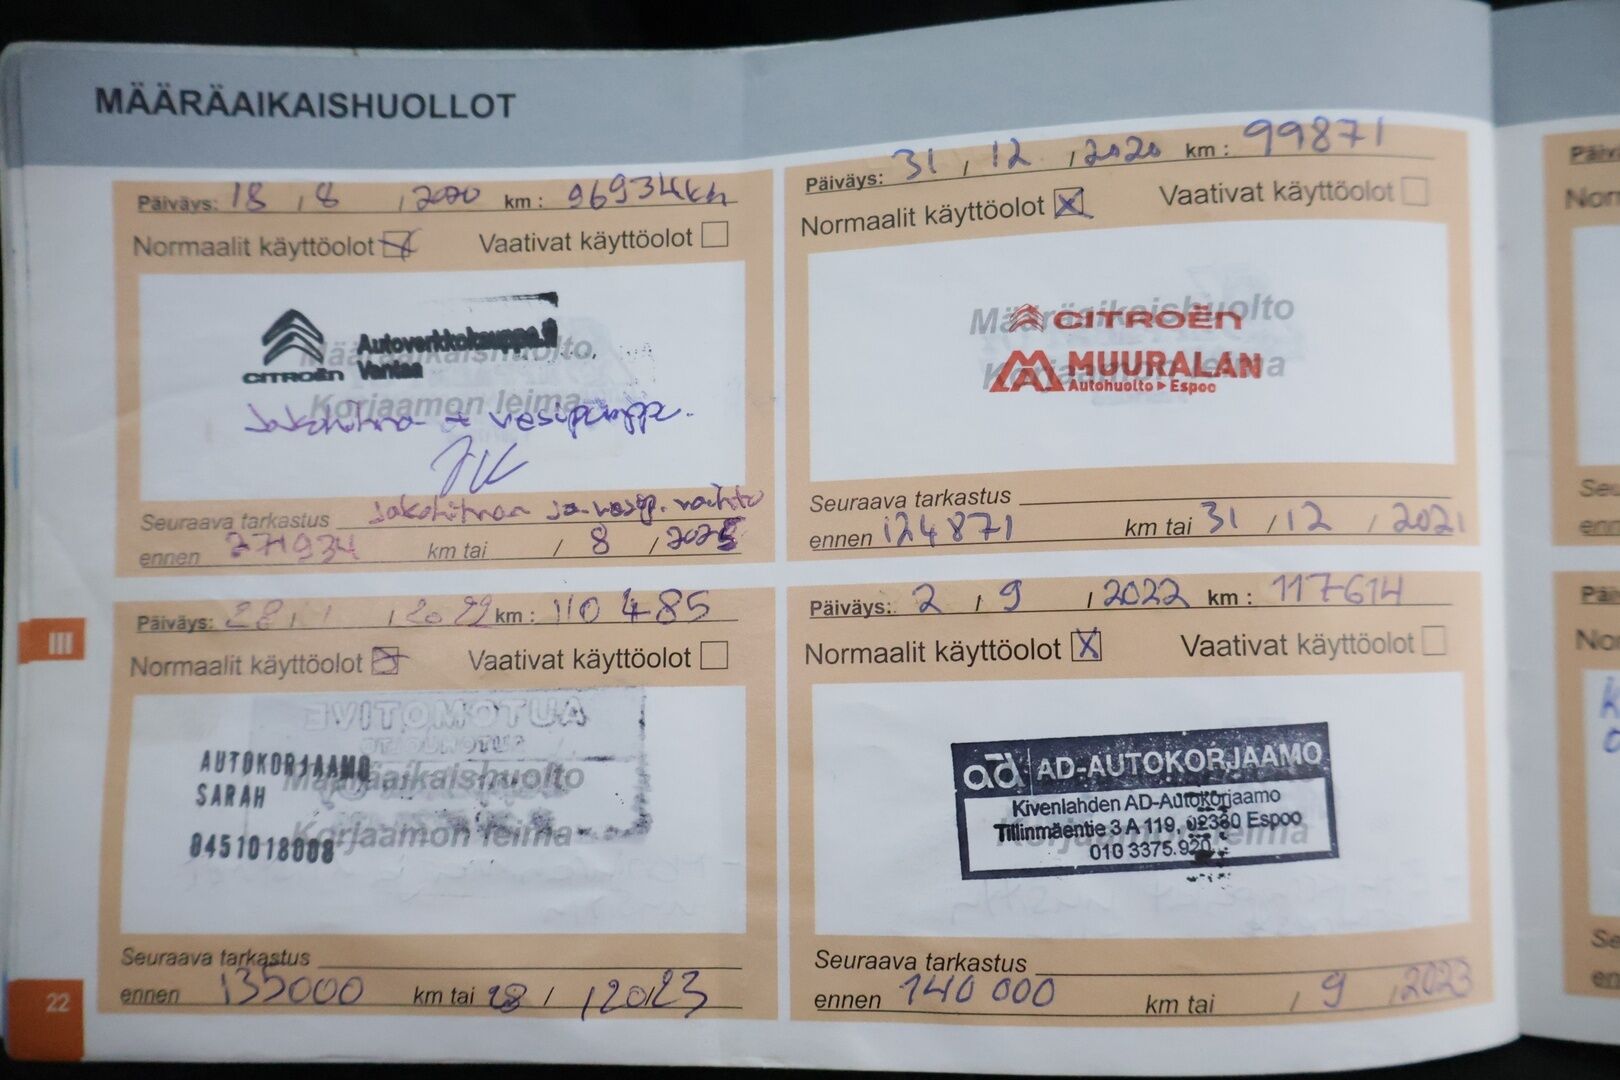 MÄÄRÄAIKAISHUOLLOT
Päiväys: 18 / 8 / 2020 km: 96934km
Normaalit käyttöolot Vaativat käyttöolot
CITROËN
Autoverkkokauppa.fi
Vantaa
Määräaikaishuolto
Korjaamon leima
Jakohihna + vesipumppu.
Seuraava tarkastus jakohihnan ja vesip. vaihto
ennen 271934 km tai / 8 / 2025
Päiväys: 31 / 12 / 2020 km: 99871
Normaalit käyttöolot X Vaativat käyttöolot
Määräaikaishuolto
CITROËN
Korjaamon leima
MUURALAN
Autohuolto Espoo
Seuraava tarkastus
ennen 124871 km tai 31 / 12 / 2021
III
Päiväys: 28 / 1 / 2022 km: 110 485
Normaalit käyttöolot Vaativat käyttöolot
AUTOMOTIVE
AUTOKORJAAMO
SARAH
0451018008
Määräaikaishuolto
Korjaamon leima
Seuraava tarkastus
ennen 135000 km tai 28 / / 2023
Päiväys: 2 / 9 / 2022 km: 117614
Normaalit käyttöolot X Vaativat käyttöolot
ad AD-AUTOKORJAAMO
Kivenlahden AD-Autokorjaamo
Tillinmäentie 3 A 119, 02330 Espoo
010 3375.920
Seuraava tarkastus
ennen 140 000 km tai / 9 / 2023
22